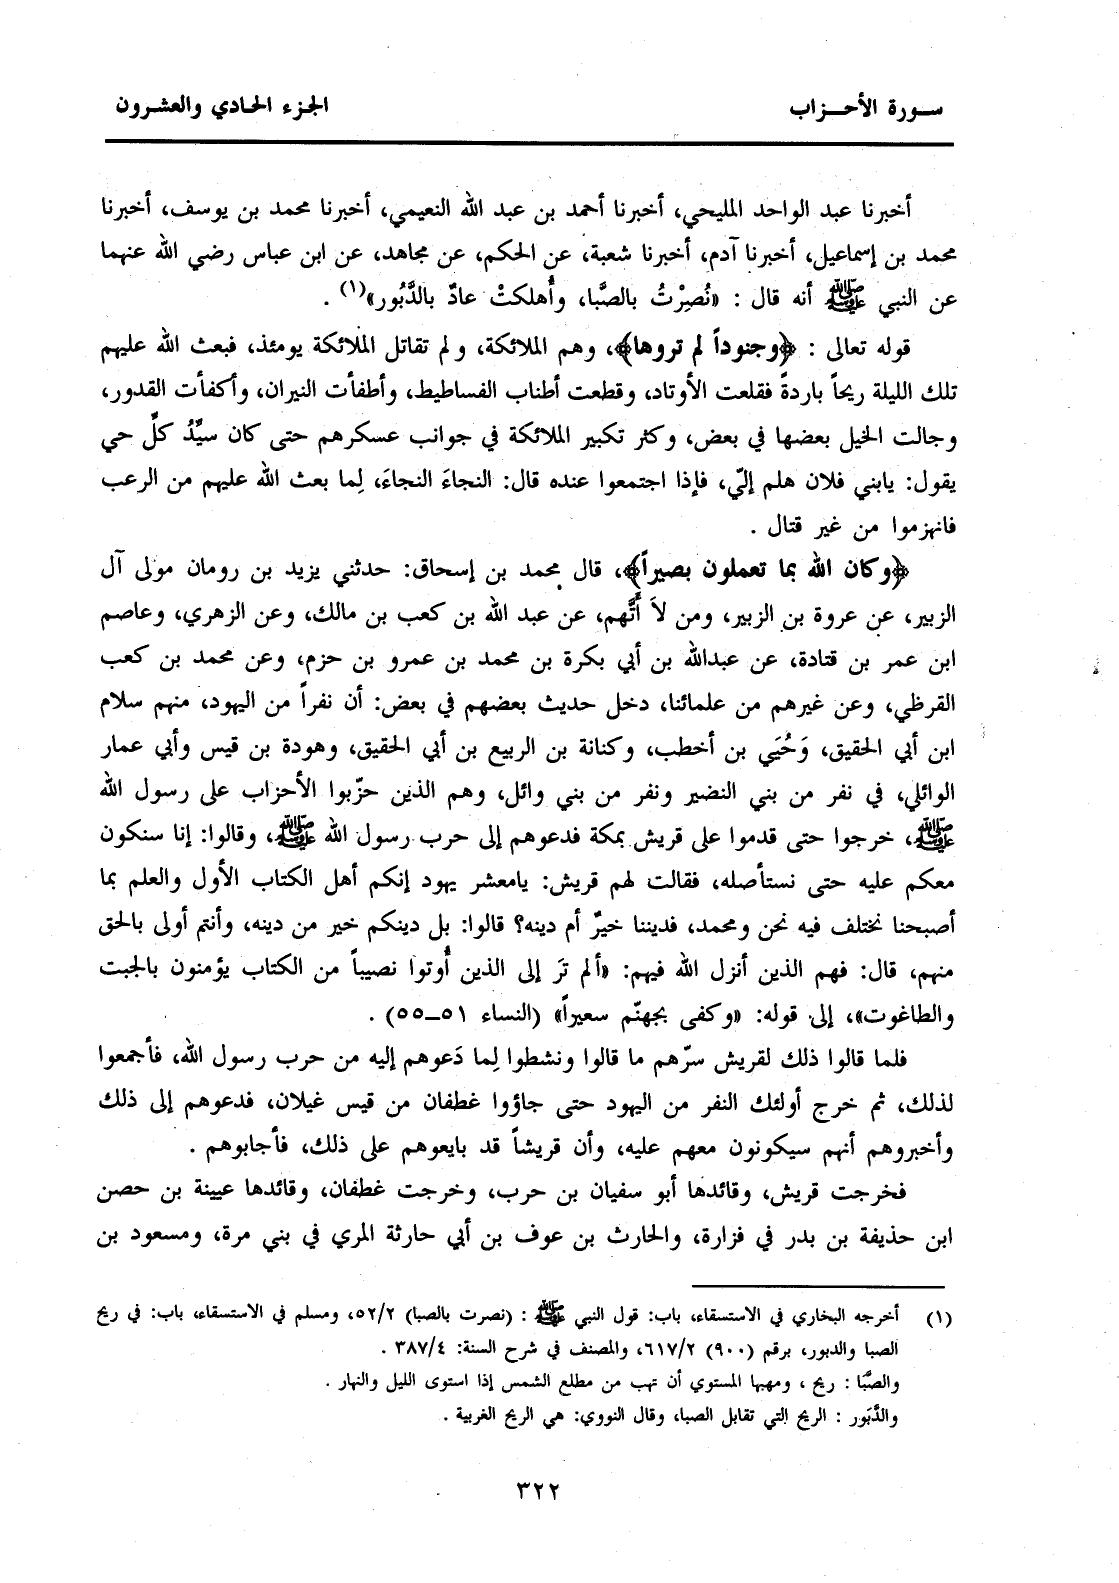 سورة الأحزاب
الجزء الحادي والعشرون
أخبرنا عبد الواحد المليحي، أخبرنا أحمد بن عبد الله النعيمي، أخبرنا محمد بن يوسف، أخبرنا
محمد بن إسماعيل، أخبرنا آدم، أخبرنا شعبة، عن الحكم، عن مجاهد، عن ابن عباس رضي الله عنهما
عن النبي ﷺ أنه قال : «نُصِرْتُ بالصَّبا، وأُهلكتْ عادٌ بالدَّبُور»(١) .
قوله تعالى : ﴿وجنوداً لم تروها﴾، وهم الملائكة، ولم تقاتل الملائكة يومئذ، فبعث الله عليهم
تلك الليلة ريحاً باردةً فقلعت الأوتاد، وقطعت أطناب الفساطيط، وأطفأت النيران، وأكفأت القدور،
وجالت الخيل بعضها في بعض، وكثر تكبير الملائكة في جوانب عسكرهم حتى كان سيِّدُ كلِّ حي
يقول: يابني فلان هلم إليّ، فإذا اجتمعوا عنده قال: النجاءَ النجاءَ، لِما بعث الله عليهم من الرعب
فانهزموا من غير قتال .
﴿وكان الله بما تعملون بصيراً﴾، قال محمد بن إسحاق: حدثني يزيد بن رومان مولى آل
الزبير، عن عروة بن الزبير، ومن لاَ أتَّهم، عن عبد الله بن كعب بن مالك، وعن الزهري، وعاصم
ابن عمر بن قتادة، عن عبدالله بن أبي بكرة بن محمد بن عمرو بن حزم، وعن محمد بن كعب
القرظي، وعن غيرهم من علمائنا، دخل حديث بعضهم في بعض: أن نفراً من اليهود، منهم سلام
ابن أبي الحقيق، وَحُيَي بن أخطب، وكنانة بن الربيع بن أبي الحقيق، وهودة بن قيس وأبي عمار
الوائلي، في نفر من بني النضير ونفر من بني وائل، وهم الذين حزّبوا الأحزاب على رسول الله
ﷺ، خرجوا حتى قدموا على قريش بمكة فدعوهم إلى حرب رسول الله ﷺ، وقالوا: إنا سنكون
معكم عليه حتى نستأصله، فقالت لهم قريش: يامعشر يهود إنكم أهل الكتاب الأول والعلم بما
أصبحنا نختلف فيه نحن ومحمد، فديننا خيرٌ أم دينه؟ قالوا: بل دينكم خير من دينه، وأنتم أولى بالحق
منهم، قال: فهم الذين أنزل الله فيهم: «ألم ترَ إلى الذين أُوتوا نصيباً من الكتاب يؤمنون بالجبت
والطاغوت»، إلى قوله: «وكفى بجهنّم سعيراً» (النساء ٥١–٥٥) .
فلما قالوا ذلك لقريش سرّهم ما قالوا ونشطوا لِما دَعوهم إليه من حرب رسول الله، فأجمعوا
لذلك، ثم خرج أولئك النفر من اليهود حتى جاؤوا غطفان من قيس غيلان، فدعوهم إلى ذلك
وأخبروهم أنهم سيكونون معهم عليه، وأن قريشاً قد بايعوهم على ذلك، فأجابوهم .
فخرجت قريش، وقائدها أبو سفيان بن حرب، وخرجت غطفان، وقائدها عيينة بن حصن
ابن حذيفة بن بدر في فزارة، والحارث بن عوف بن أبي حارثة المري في بني مرة، ومسعود بن
(١) أخرجه البخاري في الاستسقاء، باب: قول النبي ﷺ : (نصرت بالصبا) ٥٢/٢، ومسلم في الاستسقاء، باب: في ريح
الصبا والدبور، برقم (٩٠٠) ٦١٧/٢، والمصنف في شرح السنة: ٣٨٧/٤ .
والصَّبَا : ريح ، ومهبها المستوي أن تهب من مطلع الشمس إذا استوى الليل والنهار .
والدَّبَور : الريح التي تقابل الصبا، وقال النووي: هي الريح الغربية .
٣٢٢